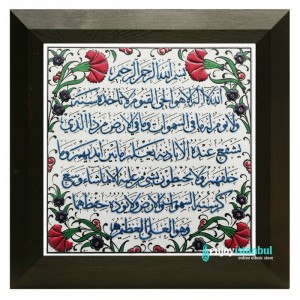 بسم الله الرحمن الرحيم
الله لا اله الا هو الحي القيوم لا تأخذه سنة
ولا نوم له ما في السموات وما في الارض من ذا الذي
يشفع عنده الا باذنه يعلم ما بين ايديهم وما
خلفهم ولا يحيطون بشيء من علمه الا بما شاء وسع
كرسيه السموات والارض ولا يؤده حفظهما
وهو العلي العظيم
enjoyistanbul
online ethnic store